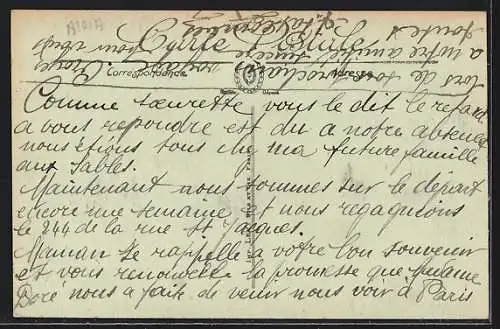 A101A
Carte Postale
Correspondance
Adresse
Comme sœurette vous le dit le retard
a vous repondre est du a notre absence
nous étions tous chez ma future famille
aux Sables.
Maintenant nous sommes sur le départ
encore une semaine et nous regagnerons
le 244 de la rue St Jacques.
Maman se rappelle a votre bon souvenir
et vous renouvelle la promesse que Madame
Doré nous a faite de venir nous voir à Paris
lors de son prochain voyage
a notre amitié sincère